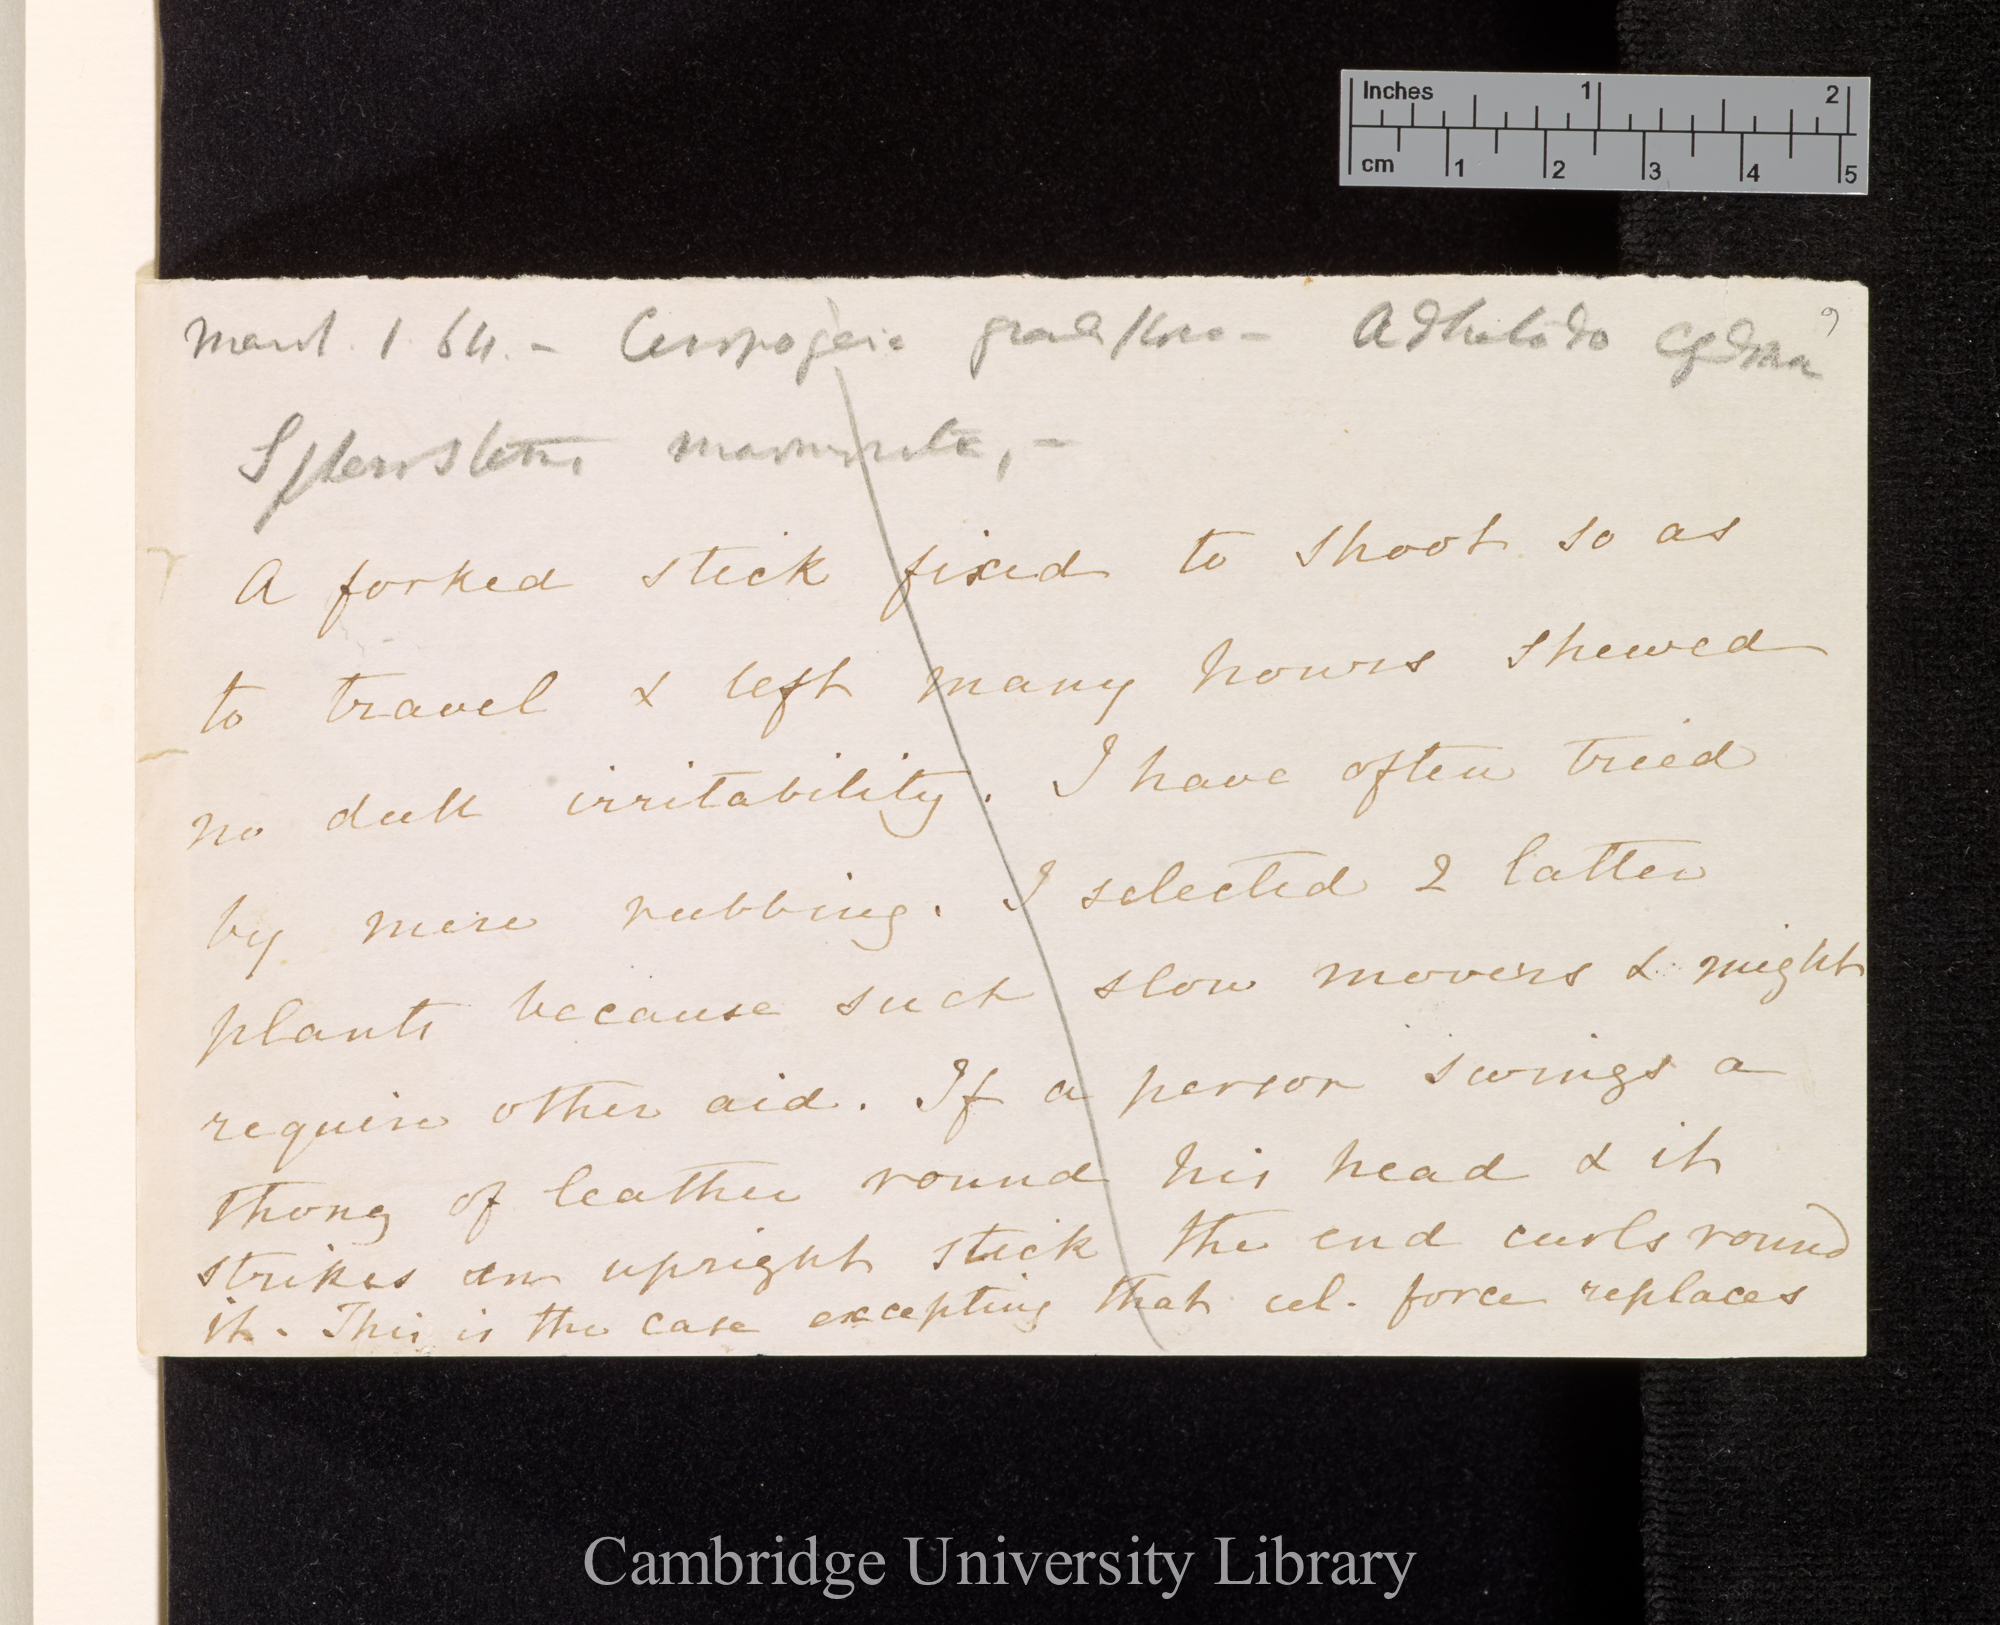 Inches 1 2
cm 1 2 3 4 5
9
March. 1. 64. - Ceropogeia - Adhatoda
Sphærostema marmorata, -
A forked stick fixed to shoot so as
to travel & left many hours shewed
no dull irritability. I have often tried
by mere rubbing. I selected 2 latter
plants because such slow movers & might
require other aid. If a person swings a
thong of leather round his head & it
strikes an upright stick the end curls round
it. This is the case excepting that cel. force replaces
Cambridge University Library